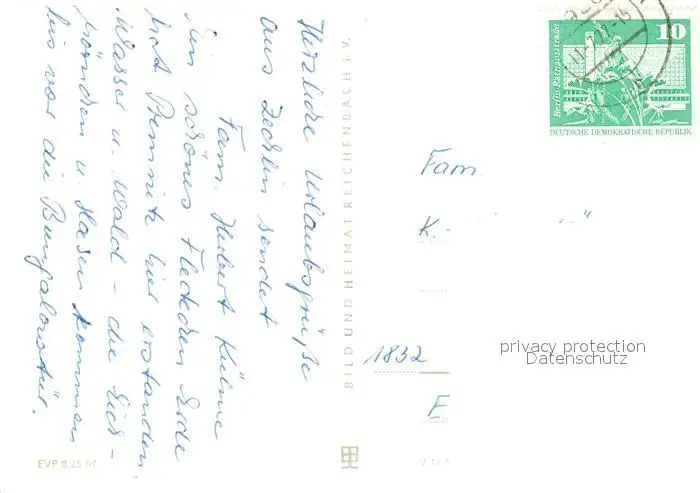 Herzliche Urlaubsgrüße
aus Zechlin sendet
Fam. Herbert Kühne
Ein schönes Fleckchen Erde
hat Premnitz hier erstanden.
Wasser u. Wald – die Eich-
hörnchen u. Hasen kommen
bis vor die Bungalowtür.
EVP 0,25 M
BILD UND HEIMAT REICHENBACH I. V.
10
Berlin, Rathausstraße
DEUTSCHE DEMOKRATISCHE REPUBLIK
Fam.
K.
1832
E
privacy protection
Datenschutz